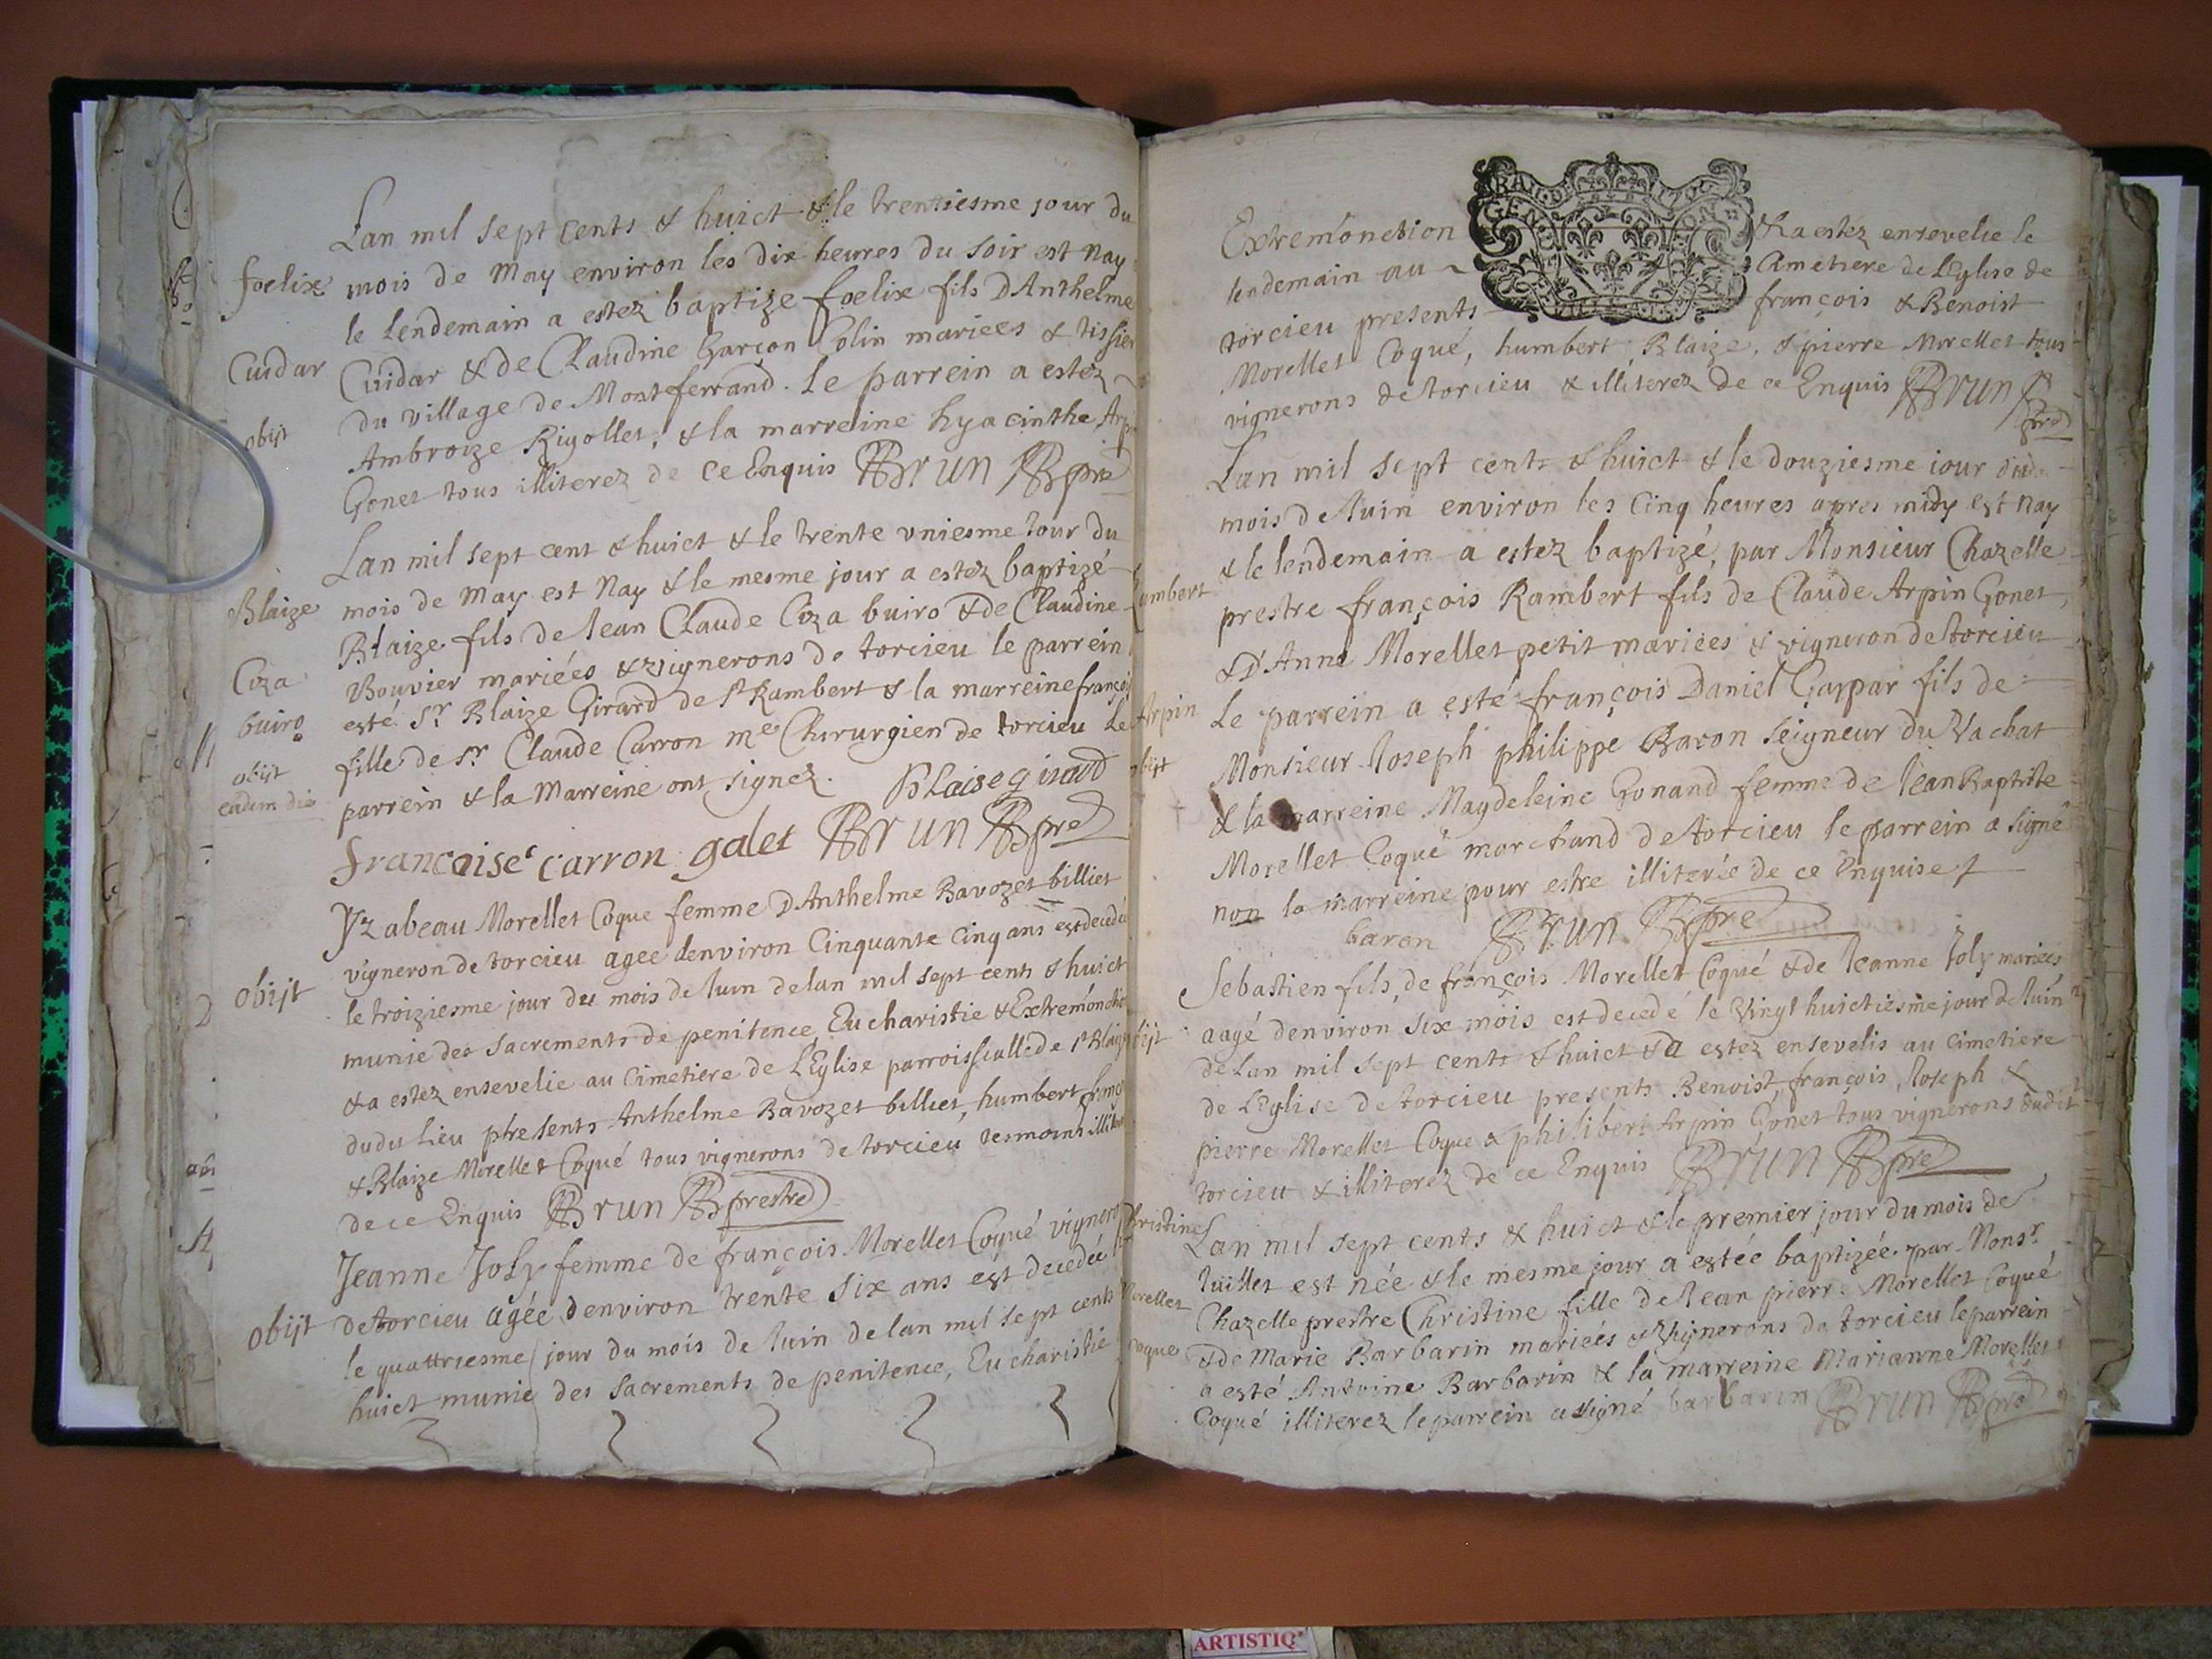 Lan mil sept cents & huict & le trentiesme jour du
foelix mois de May environ les dix heures du soir est nay
le lendemain a estez baptize foelix fils DAnthelme
Cuidar Cuidar & de Claudine Garçon Colin mariees & tissier
du village de Montferrand. Le parrein a estez
obijt Ambroize Rigollet, & la marreine hyacinthe
Gonet tous illiterez de ce Enquis Brun pre
Lan mil sept cent & huict & le trente vniesme Jour du
Blaize mois de May est Nay & le mesme jour a estez baptizé
Blaize fils de Jean Claude Coza buiro & de Claudine
Coza Bouvier mariées & vignerons de torcieu le parrein
buiro esté Sr Blaize Girard de st Rambert & la marreine françoi
obijt fille de sr Claude Carron me Chirurgien de torcieu Le
eadem die parrein & la Marreine ont signez. Blaise girard
francoise carron galet Brun pre
Yzabeau Morellet Coque femme DAnthelme Ravozet billiet
vigneron de torcieu agee denviron Cinquante Cinq ans est decedée
obijt le troiziesme jour du mois de Juin de lan mil sept cents & huict
munie des sacrements de penitence Eucharistie & Extremonctio
& a estez ensevelie au Cimetiere de LEglise parroissialle de st Blaize
dudit lieu presents Anthelme Ravozet billiet, humbert
& Blaize Morellet Coqué tous vignerons de torcieu tesmoins
de ce Enquis Brun prestre
Jeanne Joly femme de françois Morellet Coqué vigneron
obijt de torcieu agée denviron trente six ans est decedée
le quattriesme jour du mois de Juin de lan mil sept cents
huict munie des sacrements de penitence, Eucharistie
Extremonction & a estez ensevelie le
lendemain au Cimetiere de LEglise de
torcieu presents françois & Benoist
Morellet Coqué, humbert, Blaize, & pierre Morellet tous
vignerons de torcieu & illiterez de ce Enquis Brun
pre
Lan mil sept cents & huict & le douziesme iour dud
mois de Juin environ les Cinq heures apres midy est nay
& le lendemain a estez baptizé, par Monsieur Chazelle
prestre françois Rambert fils de Claude Arpin Gonet
& D'Anne Morellet petit mariées & vigneron de torcieu
Arpin Le parrein a esté françois Daniel Gaspar fils de
obijt Monsieur Joseph philippe Baron Seigneur du Vachat
& la marreine Magdeleine Gonand femme de Jean Baptiste
Morellet Coqué marchand de torcieu le parrein a signé
non la marreine pour estre illiterée de ce Enquise
baron Brun pre
Sebastien fils de françois Morellet Coqué & de Jeanne Joly mariees
obijt aagé denviron six mois est decedé le Vingt huictiesme jour de Juin
de Lan mil sept cents & huict & a estez ensevelis au cimetiere
de LEglise de torcieu presents Benoist, françois, Joseph &
pierre Morellet Coque & philibert Arpin Gonet tous vignerons dudit
torcieu & illiterez de ce Enquis Brun pre
Christine Lan mil sept cents & huict & le premier jour du mois de
Juillet est née & le mesme jour a estée baptizée par Monsr.
Morellet Chazelle prestre Christine fille de Jean pierre Morellet Coqué
coque & de Marie Barbarin mariées & vignerons de torcieu le parrein
a esté Antoine Barbarin & la marreine Marianne Morellet
Coqué illiterez le parrein a signé barbarin Brun pre
ARTISTIQ